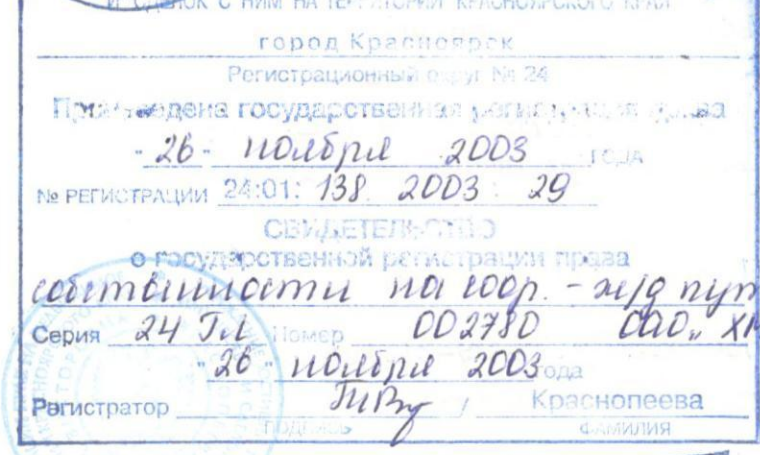 И СДЕЛОК С НИМ НА ТЕРРИТОРИИ КРАСНОЯРСКОГО КРАЯ
город Красноярск
Регистрационный округ № 24
Произведена государственная регистрация права
- 26 - ноября 2003 года
№ РЕГИСТРАЦИИ 24:01: 138. 2003 : 29
СВИДЕТЕЛЬСТВО
о государственной регистрации права
собственности на соор. - ж/д пут
Серия 24 Гл Номер 002780 ОАО „ ХМ
- 26 - ноября 2003 года
Регистратор / Краснопеева
ПОДПИСЬ ФАМИЛИЯ